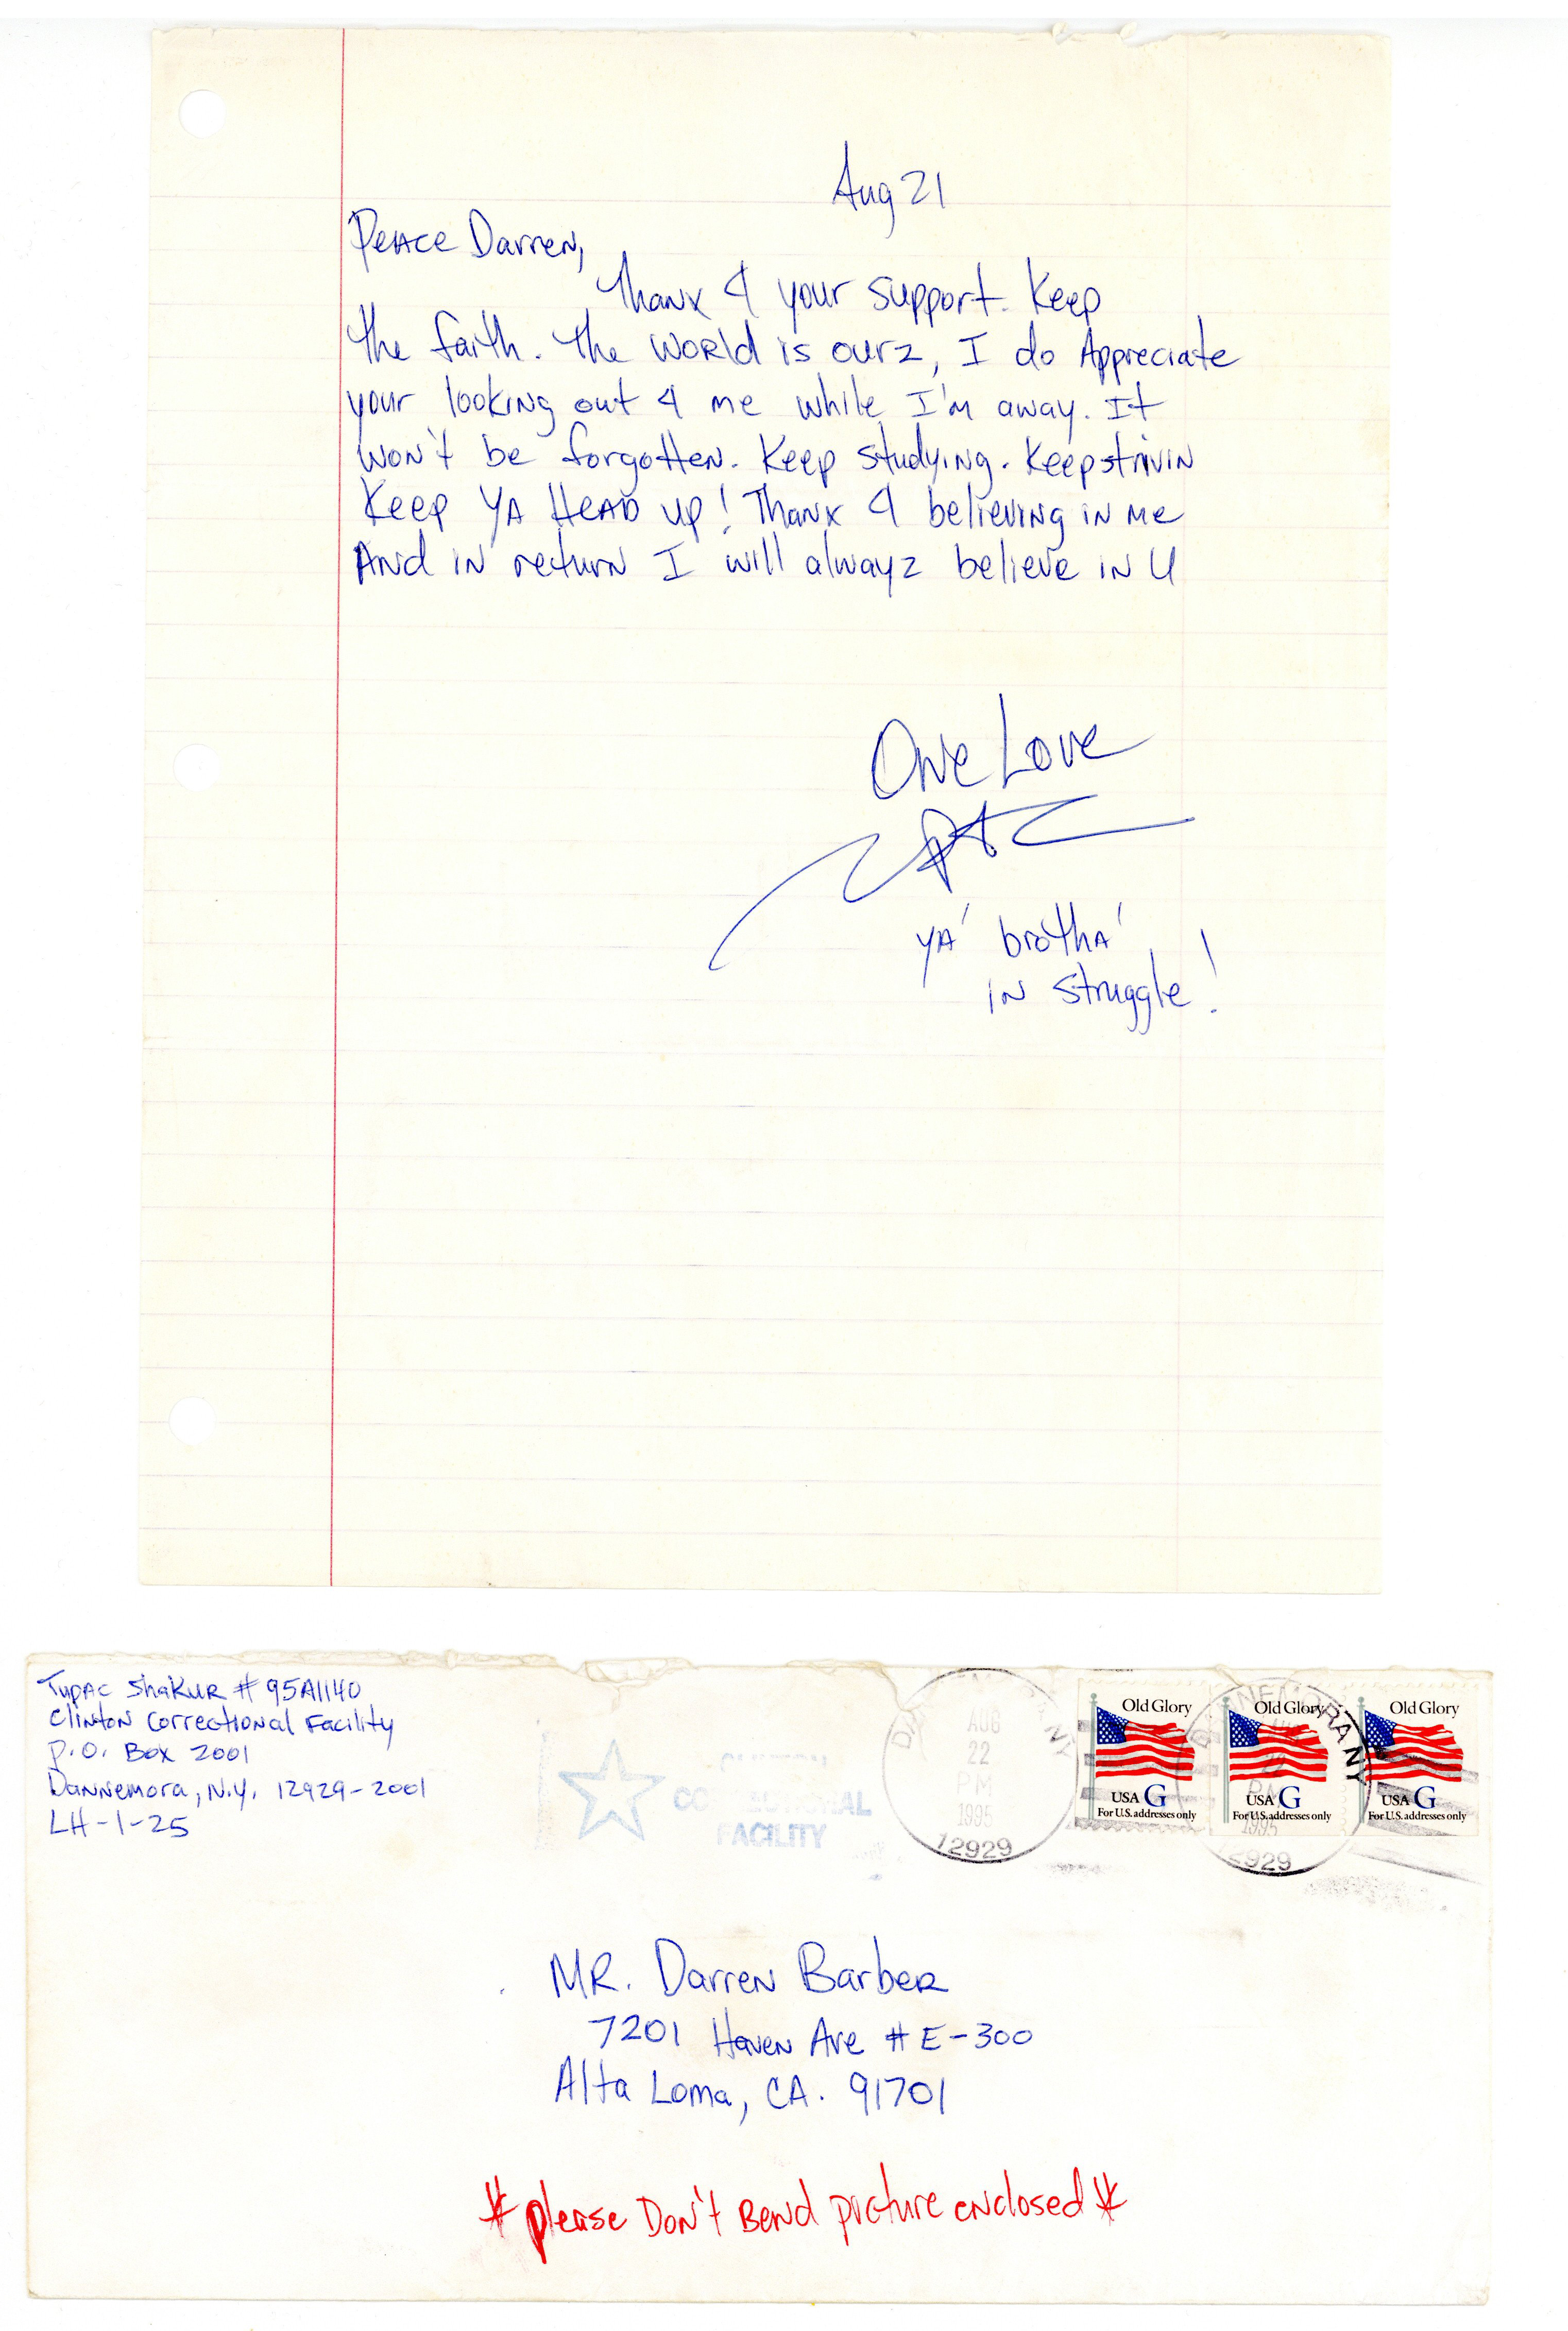 Aug 21
Peace Darren,
Thanx 4 your support. Keep
the faith. The world is ourz, I do Appreciate
your looking out 4 me while I'm away. It
won't be forgotten. Keep studying. Keep strivin
Keep YA HEAD up! Thanx 4 believing in me
And in return I will alwayz believe in U
One Love
ya' brotha'
in struggle!
Tupac Shakur # 95A1140
Clinton Correctional Facility
P.O. Box 2001
Dannemora, N.Y. 12929-2001
LH-1-25
CLINTON
CORRECTIONAL
FACILITY
DANNEMORA NY
AUG
22
PM
1995
12929
Old Glory
USA G
For U.S. addresses only
Old Glory
USA G
For U.S. addresses only
Old Glory
USA G
For U.S. addresses only
DANNEMORA NY
1995
12929
MR. Darren Barber
7201 Haven Ave # E-300
Alta Loma, CA. 91701
* please Don't Bend picture enclosed *